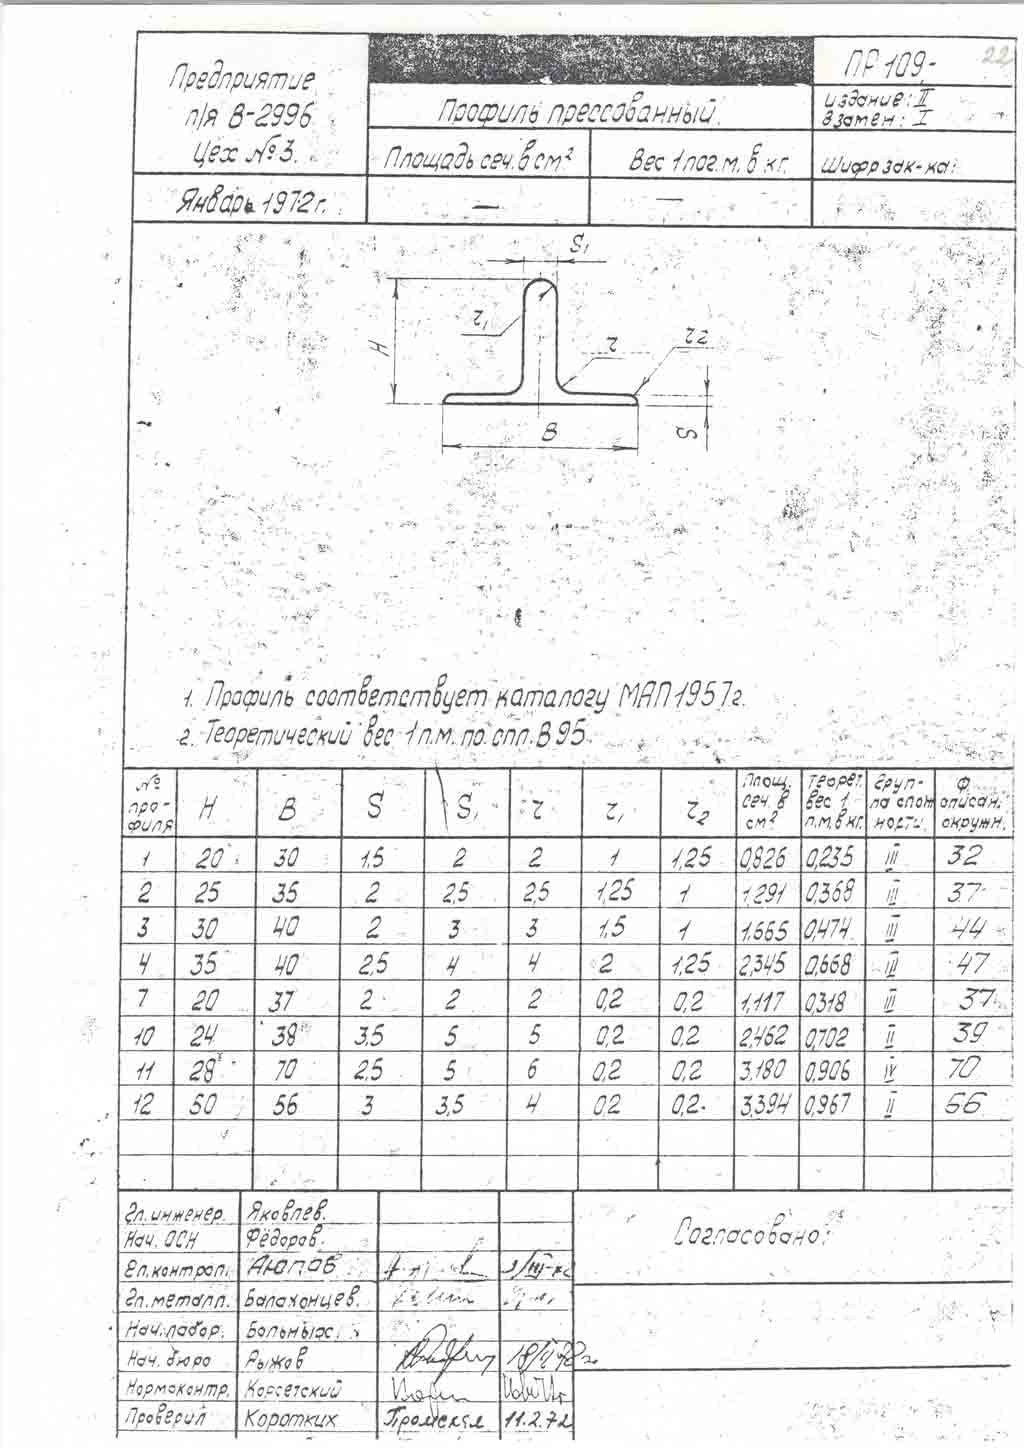 22
Предприятие
п/я В-2996
Цех № 3.
Январь 1972 г.
Профиль прессованный.
Площадь сеч. в см²
Вес 1 пог. м. в кг.
—
—
ПР 109-
издание: II
взамен: I
Шифр зак-ка:
S₁
H
r₁
r
r2
B
S
1. Профиль соответствует каталогу МАП 1957 г.
2. Теоретический вес 1 п.м. по спл. В 95.
№ про-филя H B S S₁ r r₁ r₂ Площ. сеч. в см² Теорет. вес 1 п.м. в кг. Груп-па слож ности. Ф описан. окружн.
1 20 30 1,5 2 2 1 1,25 0,826 0,235 III 32
2 25 35 2 2,5 2,5 1,25 1 1,291 0,368 III 37
3 30 40 2 3 3 1,5 1 1,665 0,474 III 44
4 35 40 2,5 4 4 2 1,25 2,345 0,668 III 47
7 20 37 2 2 2 0,2 0,2 1,117 0,318 III 37
10 24 38 3,5 5 5 0,2 0,2 2,462 0,702 II 39
11 28 70 2,5 5 6 0,2 0,2 3,180 0,906 IV 70
12 50 56 3 3,5 4 0,2 0,2 3,394 0,967 II 66
Гл. инженер. Яковлев.
Нач. ОСН Федоров.
Гл. контрол. Аюпов
Гл. металл. Балахонцев.
Нач. лабор. Больных
Нач. бюро Рыжов
Нормоконтр. Корсетский
Проверил Коротких 11.2.72
Согласовано: